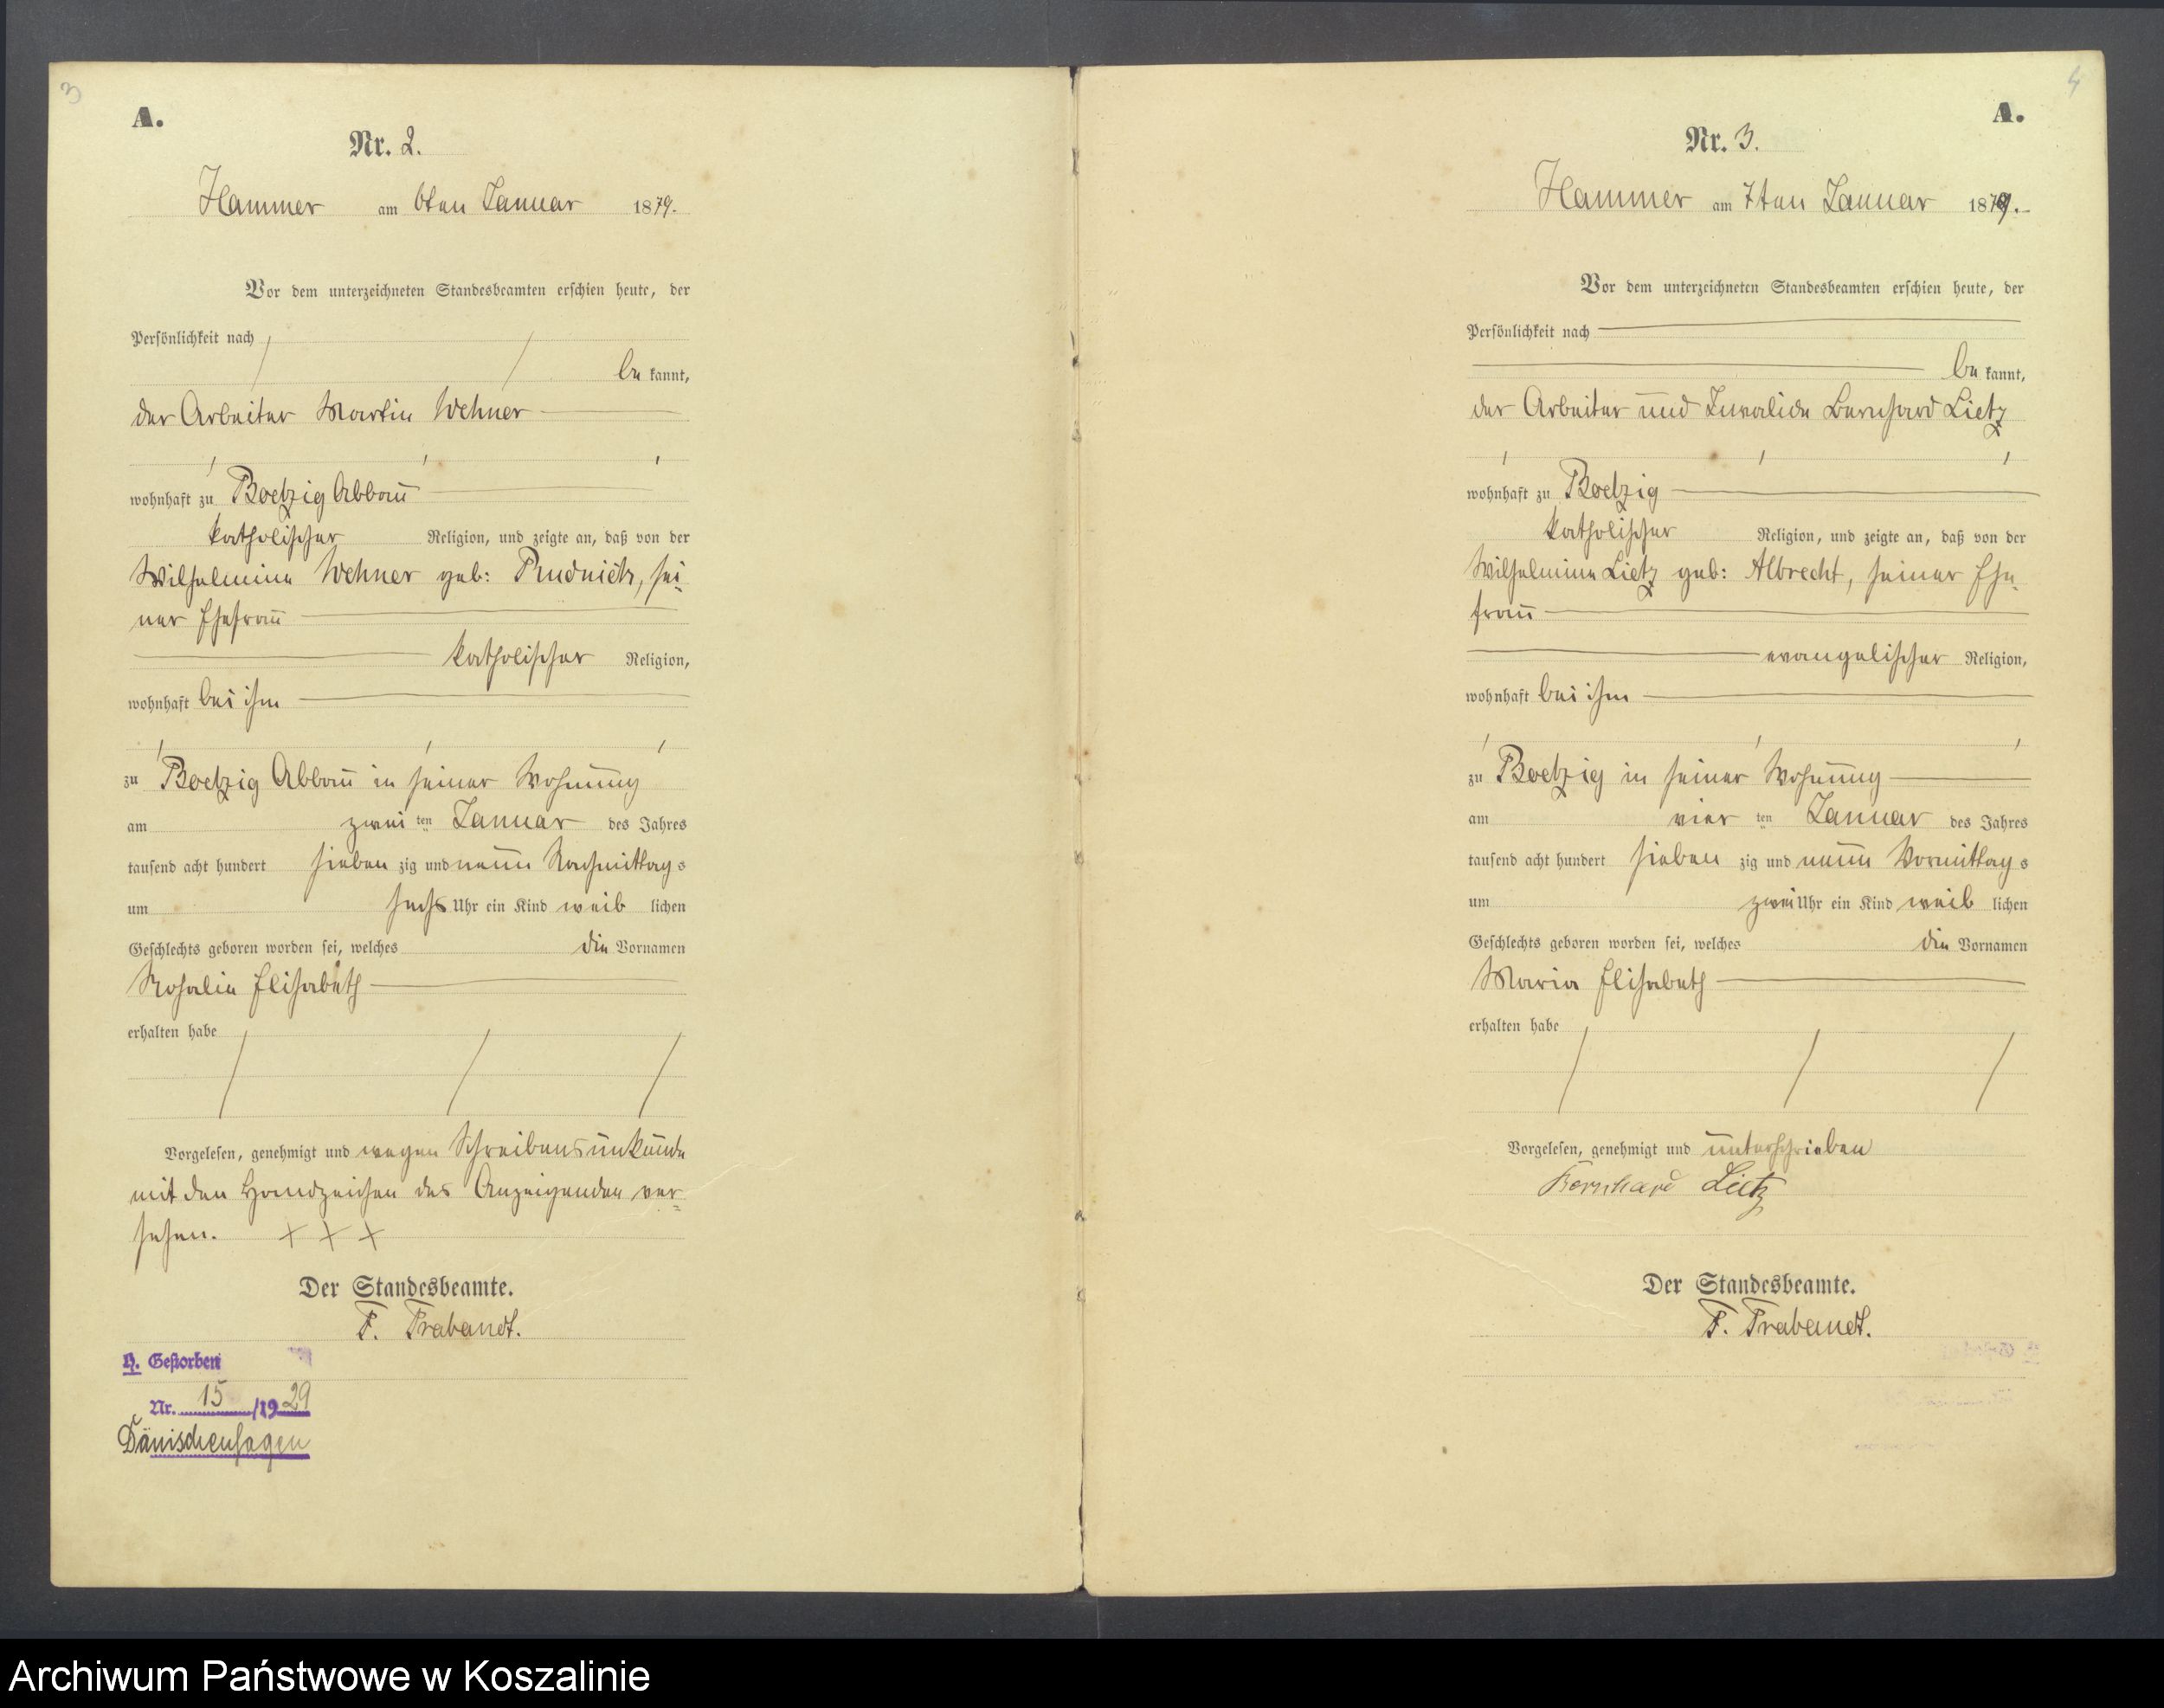 3
A.
Nr. 2.
Hammer am 6ten Januar 1879.
Vor dem unterzeichneten Standesbeamten erschien heute, der
Persönlichkeit nach
be kannt,
der Arbeiter Martin Wehner
wohnhaft zu Boetzig Abbau
katholischer Religion, und zeigte an, daß von der
Wilhelmine Wehner geb: Prudnick, sei-
ner Ehefrau
katholischer Religion,
wohnhaft bei ihm
zu Boetzig Abbau in seiner Wohnung
am zwei ten Januar des Jahres
tausend acht hundert sieben zig und neun Nachmittag s
um sechs Uhr ein Kind weib lichen
Geschlechts geboren worden sei, welches die Vornamen
Rosalie Elisabeth
erhalten habe
Vorgelesen, genehmigt und wegen Schreibensunkunde
mit den Handzeichen des Anzeigenden ver-
sehen. + + +
Der Standesbeamte.
F. Trabandt.
H. Gestorben
Nr. 15 /19 29
Dänischenhagen
4
A.
Nr. 3.
Hammer am 7ten Januar 1879.
Vor dem unterzeichneten Standesbeamten erschien heute, der
Persönlichkeit nach
be kannt,
der Arbeiter und Invalide Bernhard Lietz
wohnhaft zu Boetzig
katholischer Religion, und zeigte an, daß von der
Wilhelmine Lietz geb: Albrecht, seiner Ehe-
frau
evangelischer Religion,
wohnhaft bei ihm
zu Boetzig in seiner Wohnung
am vier ten Januar des Jahres
tausend acht hundert sieben zig und neun Vormittag s
um zwei Uhr ein Kind weib lichen
Geschlechts geboren worden sei, welches die Vornamen
Maria Elisabeth
erhalten habe
Vorgelesen, genehmigt und unterschrieben
Bernhard Lietz
Der Standesbeamte.
F. Trabandt.
Archiwum Państwowe w Koszalinie